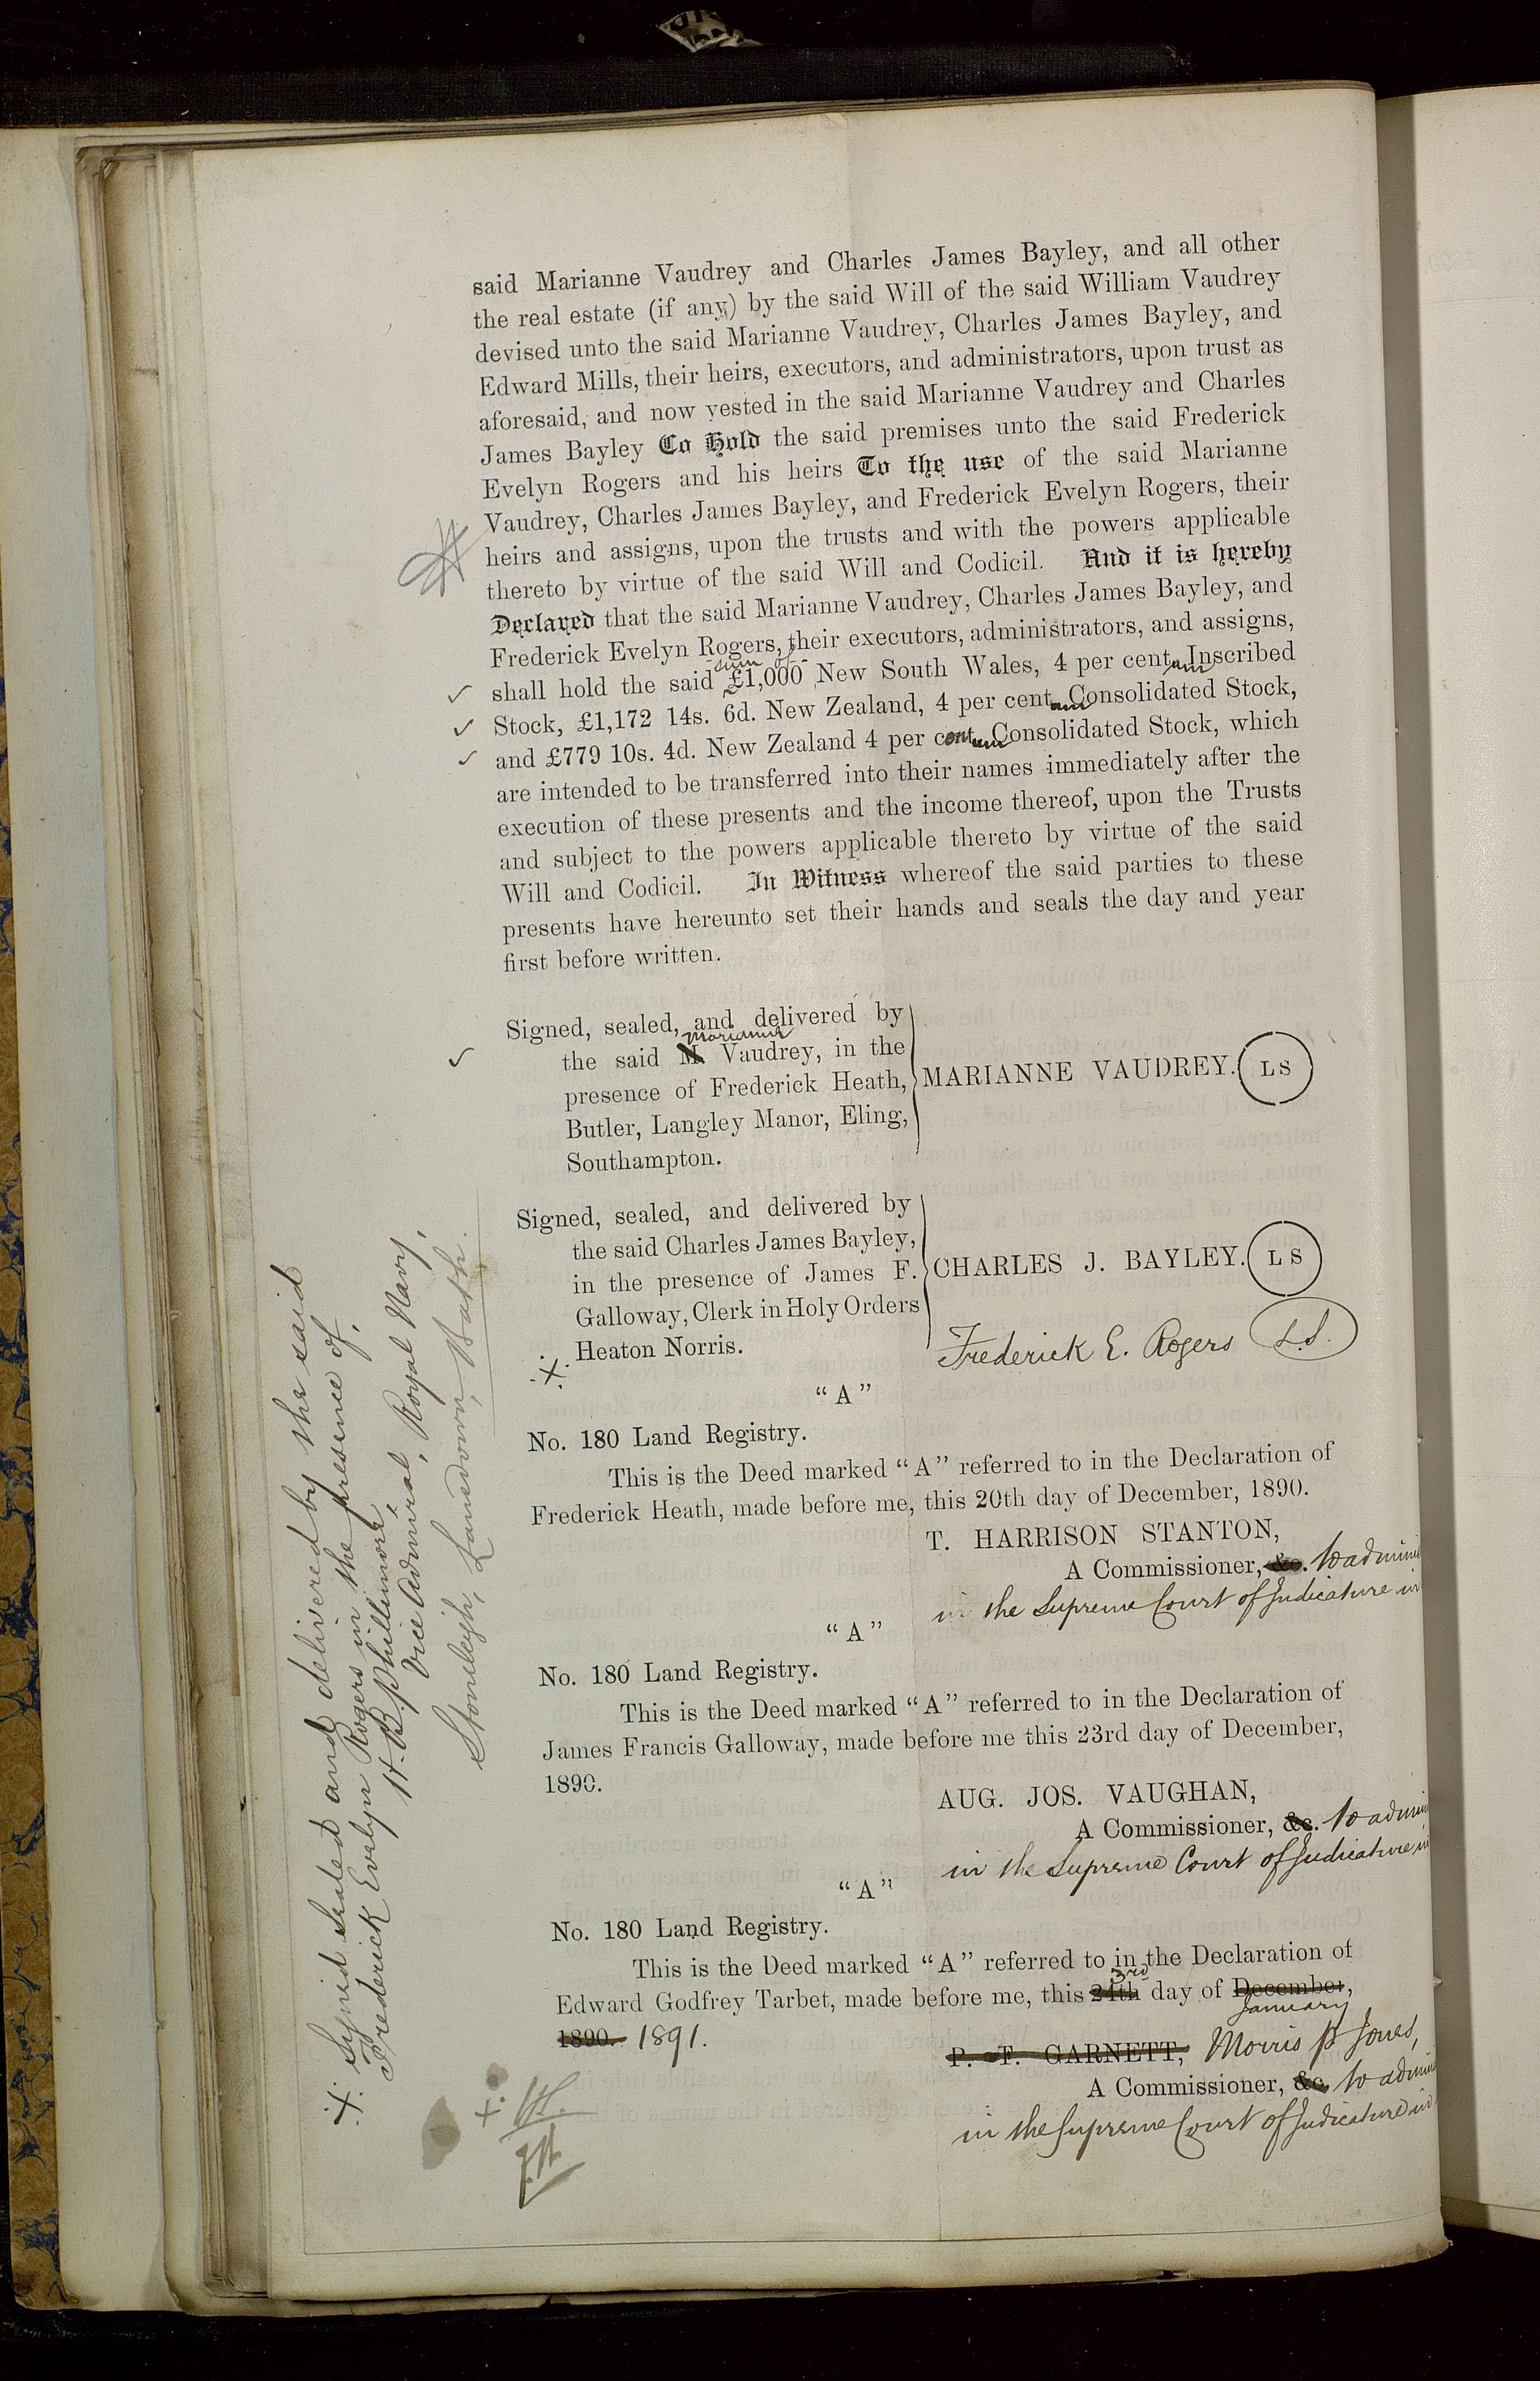 said Marianne Vaudrey and Charles James Bayley, and all other
the real estate (if any) by the said Will of the said William Vaudrey
devised unto the said Marianne Vaudrey, Charles James Bayley, and
Edward Mills, their heirs, executors, and administrators, upon trust as
aforesaid, and now vested in the said Marianne Vaudrey and Charles
James Bayley To Hold the said premises unto the said Frederick
Evelyn Rogers and his heirs To the use of the said Marianne
Vaudrey, Charles James Bayley, and Frederick Evelyn Rogers, their
heirs and assigns, upon the trusts and with the powers applicable
thereto by virtue of the said Will and Codicil. And it is hereby
Declared that the said Marianne Vaudrey, Charles James Bayley, and
Frederick Evelyn Rogers, their executors, administrators, and assigns,
shall hold the said sum of £1,000 New South Wales, 4 per centum Inscribed
Stock, £1,172 14s. 6d. New Zealand, 4 per centum Consolidated Stock,
and £779 10s. 4d. New Zealand 4 per centum Consolidated Stock, which
are intended to be transferred into their names immediately after the
execution of these presents and the income thereof, upon the Trusts
and subject to the powers applicable thereto by virtue of the said
Will and Codicil. In Witness whereof the said parties to these
presents have hereunto set their hands and seals the day and year
first before written.
Signed, sealed, and delivered by
the said M Marianne Vaudrey, in the
presence of Frederick Heath,
Butler, Langley Manor, Eling,
Southampton.
MARIANNE VAUDREY. L S
Signed, sealed, and delivered by
the said Charles James Bayley,
in the presence of James F.
Galloway, Clerk in Holy Orders
Heaton Norris.
CHARLES J. BAYLEY. L S
Frederick E. Rogers L.S.
"A"
No. 180 Land Registry.
This is the Deed marked "A" referred to in the Declaration of
Frederick Heath, made before me, this 20th day of December, 1890.
T. HARRISON STANTON,
A Commissioner, &c. to admini
in the Supreme Court of Judicature in
"A"
No. 180 Land Registry.
This is the Deed marked "A" referred to in the Declaration of
James Francis Galloway, made before me this 23rd day of December,
1890.
AUG. JOS. VAUGHAN,
A Commissioner, &c. to admin
in the Supreme Court of Judicature in
"A"
No. 180 Land Registry.
This is the Deed marked "A" referred to in the Declaration of
Edward Godfrey Tarbet, made before me, this 24th 3rd day of December, January
1890. 1891.
P. T. GARNETT, Morris P Jones,
A Commissioner, &c. to admin
in the Supreme Court of Judicature in
Signed sealed and delivered by the said
Frederick Evelyn Rogers in the presence of,
H. B. Phillimore,
Vice Admiral, Royal Navy,
Stonleigh, Lansdown, Bath.